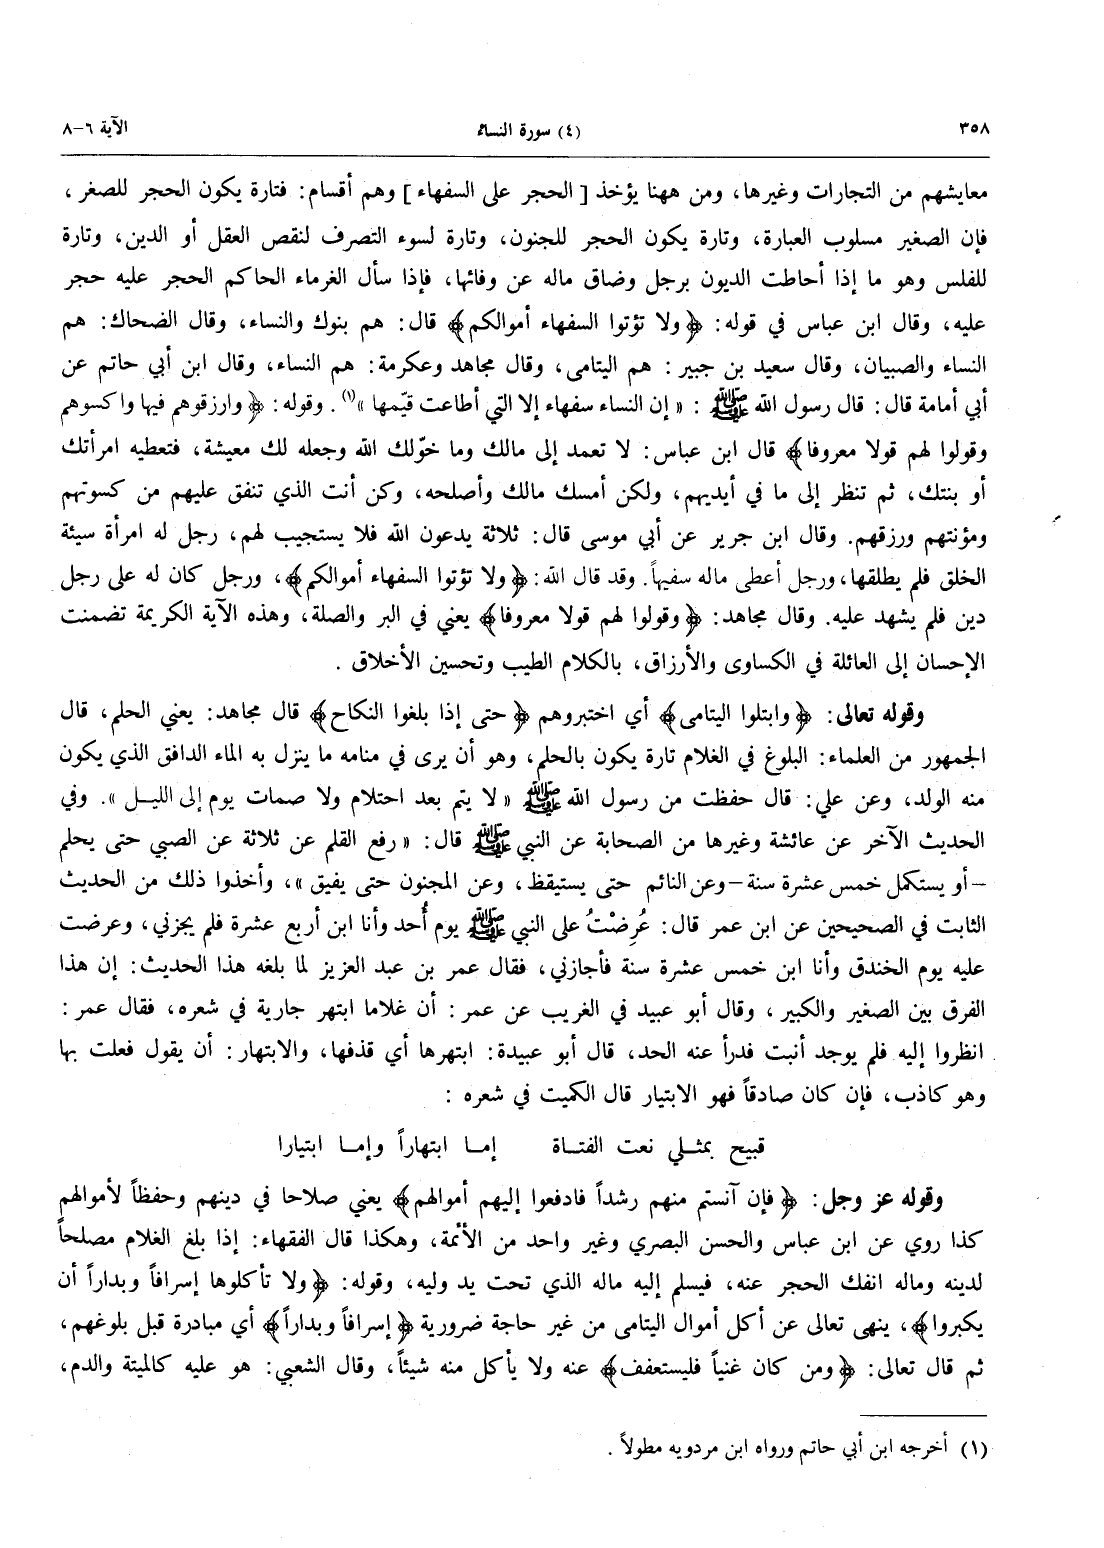 ٣٥٨ (٤) سورة النساء الآية ٦-٨
معايشهم من التجارات وغيرها، ومن ههنا يؤخذ [ الحجر على السفهاء ] وهم أقسام: فتارة يكون الحجر للصغر ،
فإن الصغير مسلوب العبارة، وتارة يكون الحجر للجنون، وتارة لسوء التصرف لنقص العقل أو الدين، وتارة
للفلس وهو ما إذا أحاطت الديون برجل وضاق ماله عن وفائها، فإذا سأل الغرماء الحاكم الحجر عليه حجر
عليه، وقال ابن عباس في قوله: ﴿ولا تؤتوا السفهاء أموالكم﴾ قال: هم بنوك والنساء، وقال الضحاك: هم
النساء والصبيان، وقال سعيد بن جبير : هم اليتامى، وقال مجاهد وعكرمة: هم النساء، وقال ابن أبي حاتم عن
أبي أمامة قال: قال رسول الله ﷺ : « إن النساء سفهاء إلا التي أطاعت قيّمها »(١) . وقوله: ﴿وارزقوهم فيها واكسوهم
وقولوا لهم قولا معروفا﴾ قال ابن عباس: لا تعمد إلى مالك وما خوّلك الله وجعله لك معيشة، فتعطيه امرأتك
أو بنتك، ثم تنظر إلى ما في أيديهم، ولكن أمسك مالك وأصلحه، وكن أنت الذي تنفق عليهم من كسوتهم
ومؤنتهم ورزقهم. وقال ابن جرير عن أبي موسى قال: ثلاثة يدعون الله فلا يستجيب لهم، رجل له امرأة سيئة
الخلق فلم يطلقها، ورجل أعطى ماله سفيهاً. وقد قال الله: ﴿ولا تؤتوا السفهاء أموالكم﴾، ورجل كان له على رجل
دين فلم يشهد عليه. وقال مجاهد: ﴿وقولوا لهم قولا معروفا﴾ يعني في البر والصلة، وهذه الآية الكريمة تضمنت
الإحسان إلى العائلة في الكساوى والأرزاق، بالكلام الطيب وتحسين الأخلاق .
وقوله تعالى: ﴿وابتلوا اليتامى﴾ أي اختبروهم ﴿حتى إذا بلغوا النكاح﴾ قال مجاهد: يعني الحلم، قال
الجمهور من العلماء: البلوغ في الغلام تارة يكون بالحلم، وهو أن يرى في منامه ما ينزل به الماء الدافق الذي يكون
منه الولد، وعن علي: قال حفظت من رسول الله ﷺ « لا يتم بعد احتلام ولا صمات يوم إلى الليل ». وفي
الحديث الآخر عن عائشة وغيرها من الصحابة عن النبي ﷺ قال: « رفع القلم عن ثلاثة عن الصبي حتى يحلم
-أو يستكمل خمس عشرة سنة-وعن النائم حتى يستيقظ، وعن المجنون حتى يفيق »، وأخذوا ذلك من الحديث
الثابت في الصحيحين عن ابن عمر قال: عُرِضْتُ على النبي ﷺ يوم أُحد وأنا ابن أربع عشرة فلم يجزني، وعرضت
عليه يوم الخندق وأنا ابن خمس عشرة سنة فأجازني، فقال عمر بن عبد العزيز لما بلغه هذا الحديث: إن هذا
الفرق بين الصغير والكبير ، وقال أبو عبيد في الغريب عن عمر : أن غلاما ابتهر جارية في شعره، فقال عمر :
انظروا إليه فلم يوجد أنبت فدرأ عنه الحد، قال أبو عبيدة: ابتهرها أي قذفها، والابتهار: أن يقول فعلت بها
وهو كاذب، فإن كان صادقاً فهو الابتيار قال الكميت في شعره :
قبيح بمثلي نعت الفتاة إما ابتهاراً وإما ابتيارا
وقوله عز وجل: ﴿فإن آنستم منهم رشداً فادفعوا إليهم أموالهم﴾ يعني صلاحا في دينهم وحفظاً لأموالهم
كذا روي عن ابن عباس والحسن البصري وغير واحد من الأئمة، وهكذا قال الفقهاء: إذا بلغ الغلام مصلحاً
لدينه وماله انفك الحجر عنه، فيسلم إليه ماله الذي تحت يد وليه، وقوله: ﴿ولا تأكلوها إسرافاً وبداراً أن
يكبروا﴾، ينهى تعالى عن أكل أموال اليتامى من غير حاجة ضرورية ﴿إسرافاً وبداراً﴾ أي مبادرة قبل بلوغهم،
ثم قال تعالى: ﴿ومن كان غنياً فليستعفف﴾ عنه ولا يأكل منه شيئاً، وقال الشعبي: هو عليه كالميتة والدم،
(١) أخرجه ابن أبي حاتم ورواه ابن مردويه مطولاً .